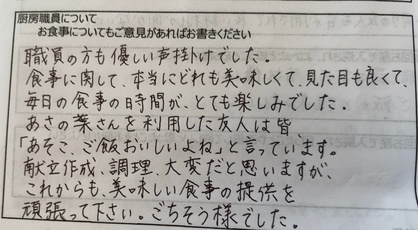 厨房職員について
お食事についてもご意見があればお書きください
職員の方も優しい声掛けでした。
食事に関して、本当にどれも美味しくて、見た目も良くて、
毎日の食事の時間が、とても楽しみでした。
あさの葉さんを利用した友人は皆、
「あそこ、ご飯おいしいよね」と言っています。
献立作成、調理、大変だと思いますが、
これからも、美味しい食事の提供を
頑張って下さい。ごちそう様でした。